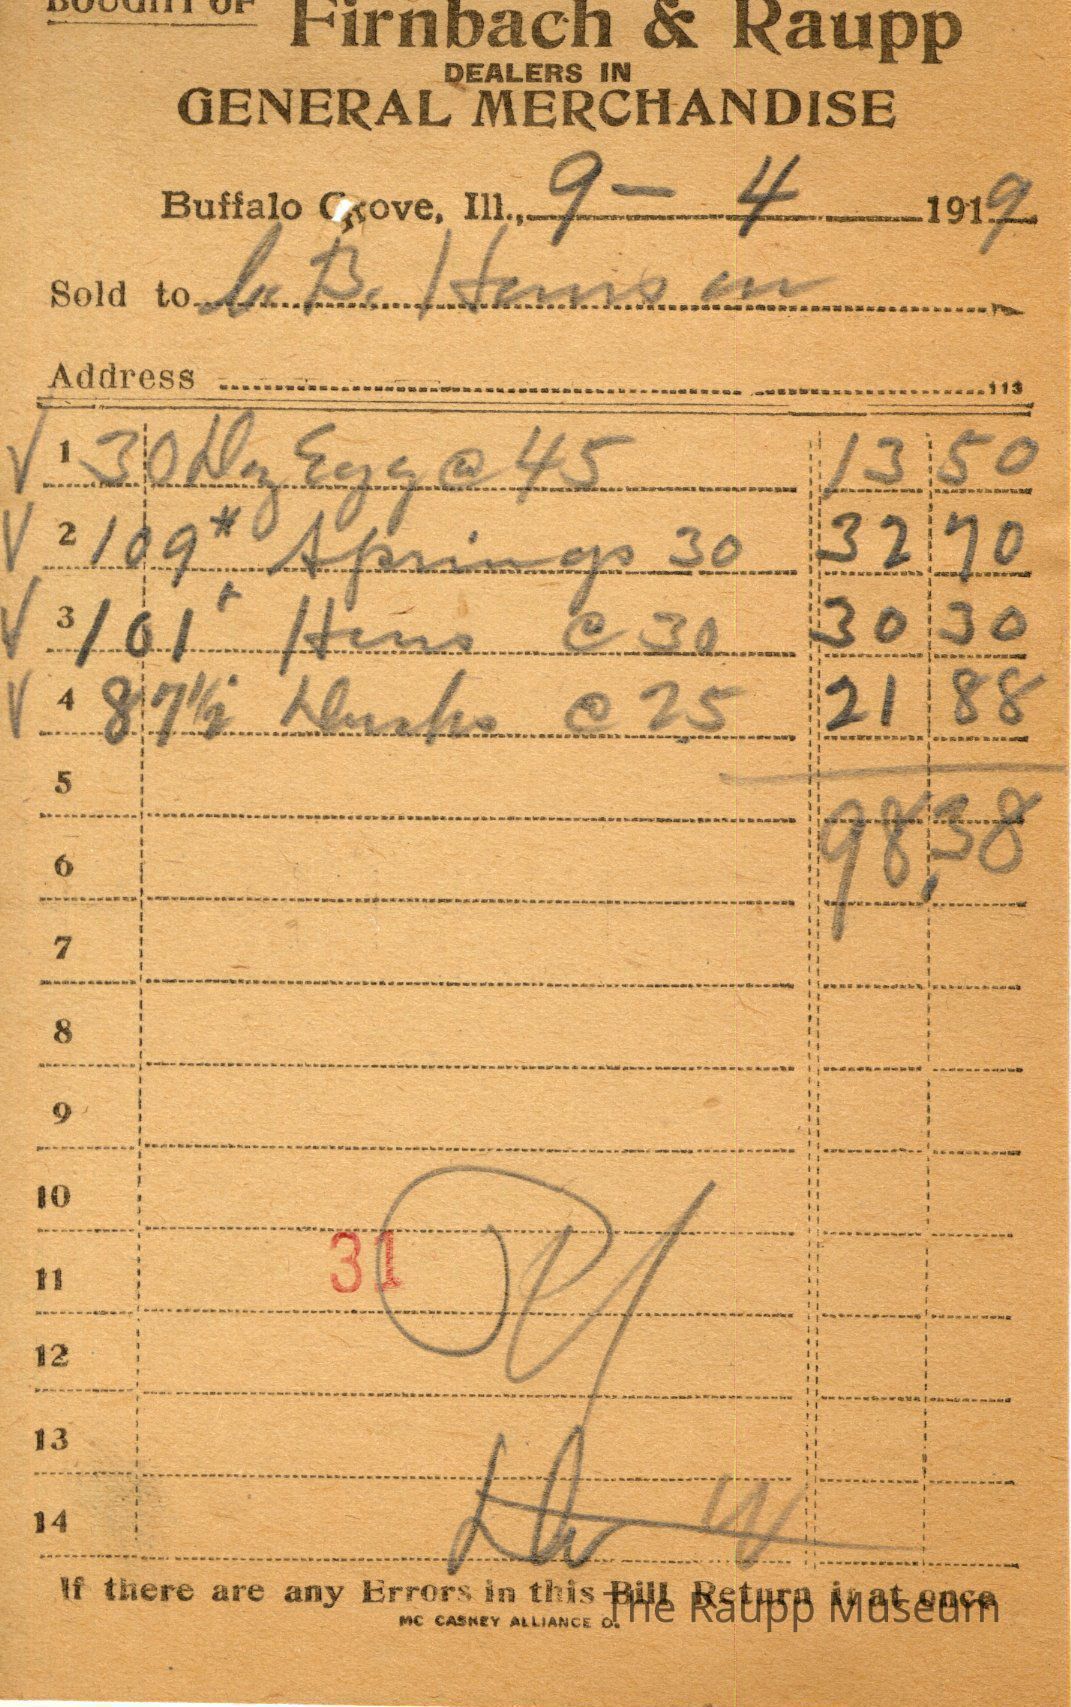 BOUGHT OF
Firnbach & Raupp
DEALERS IN
GENERAL MERCHANDISE
Buffalo Grove, Ill., 9 - 4 1919
Sold to B. Henson
Address 113
1 30 Dz Egg @ 45 13 50
2 109# Springs 30 32 70
3 101# Hens @ 30 30 30
4 87½ Ducks @ 25 21 88
5
98.38
6
7
8
9
10
31
11
12
13
14
If there are any Errors in this Bill Return it at once
MC CASKEY ALLIANCE O.
The Raupp Museum